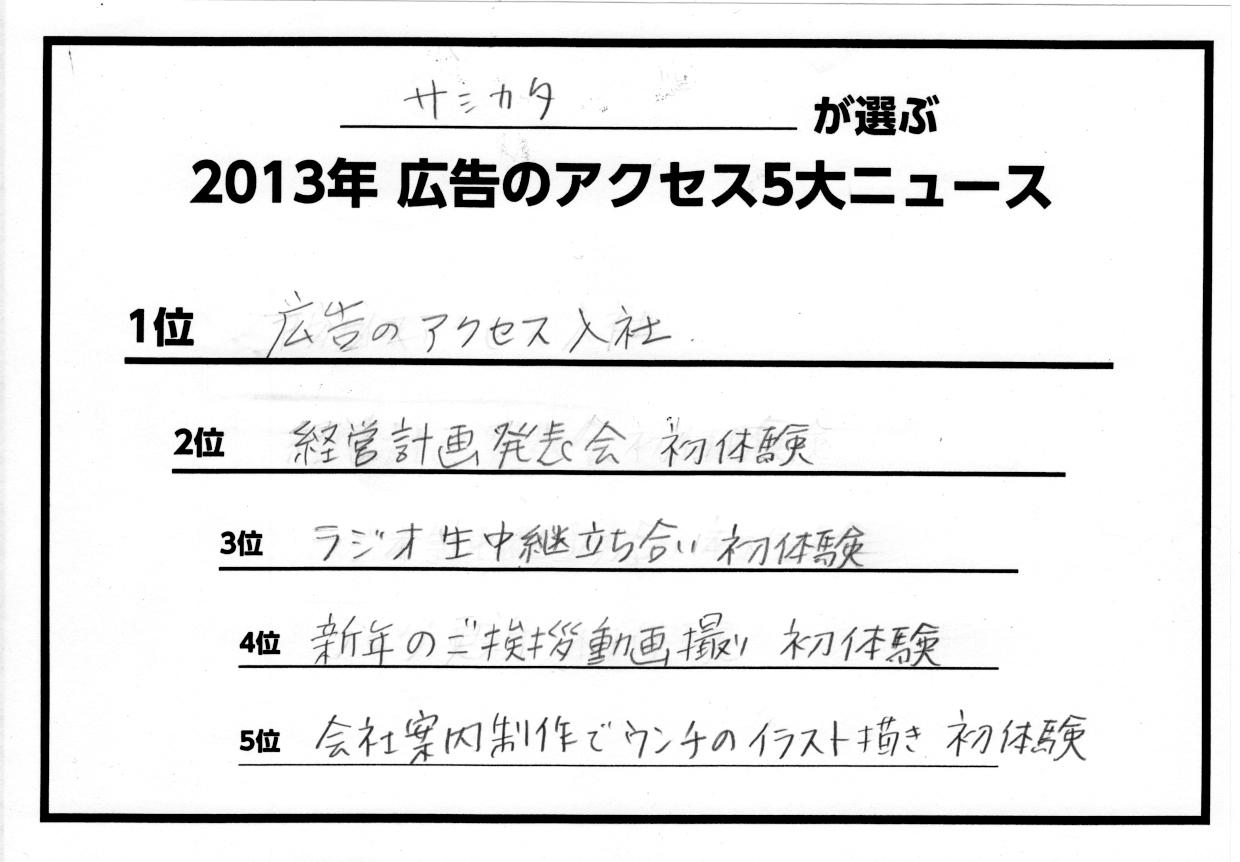 サミカタ が選ぶ
2013年 広告のアクセス5大ニュース
1位 広告のアクセス入社.
2位 経営計画発表会 初体験
3位 ラジオ生中継立ち合い 初体験
4位 新年のご挨拶動画撮り 初体験
5位 会社案内制作でウンチのイラスト描き 初体験